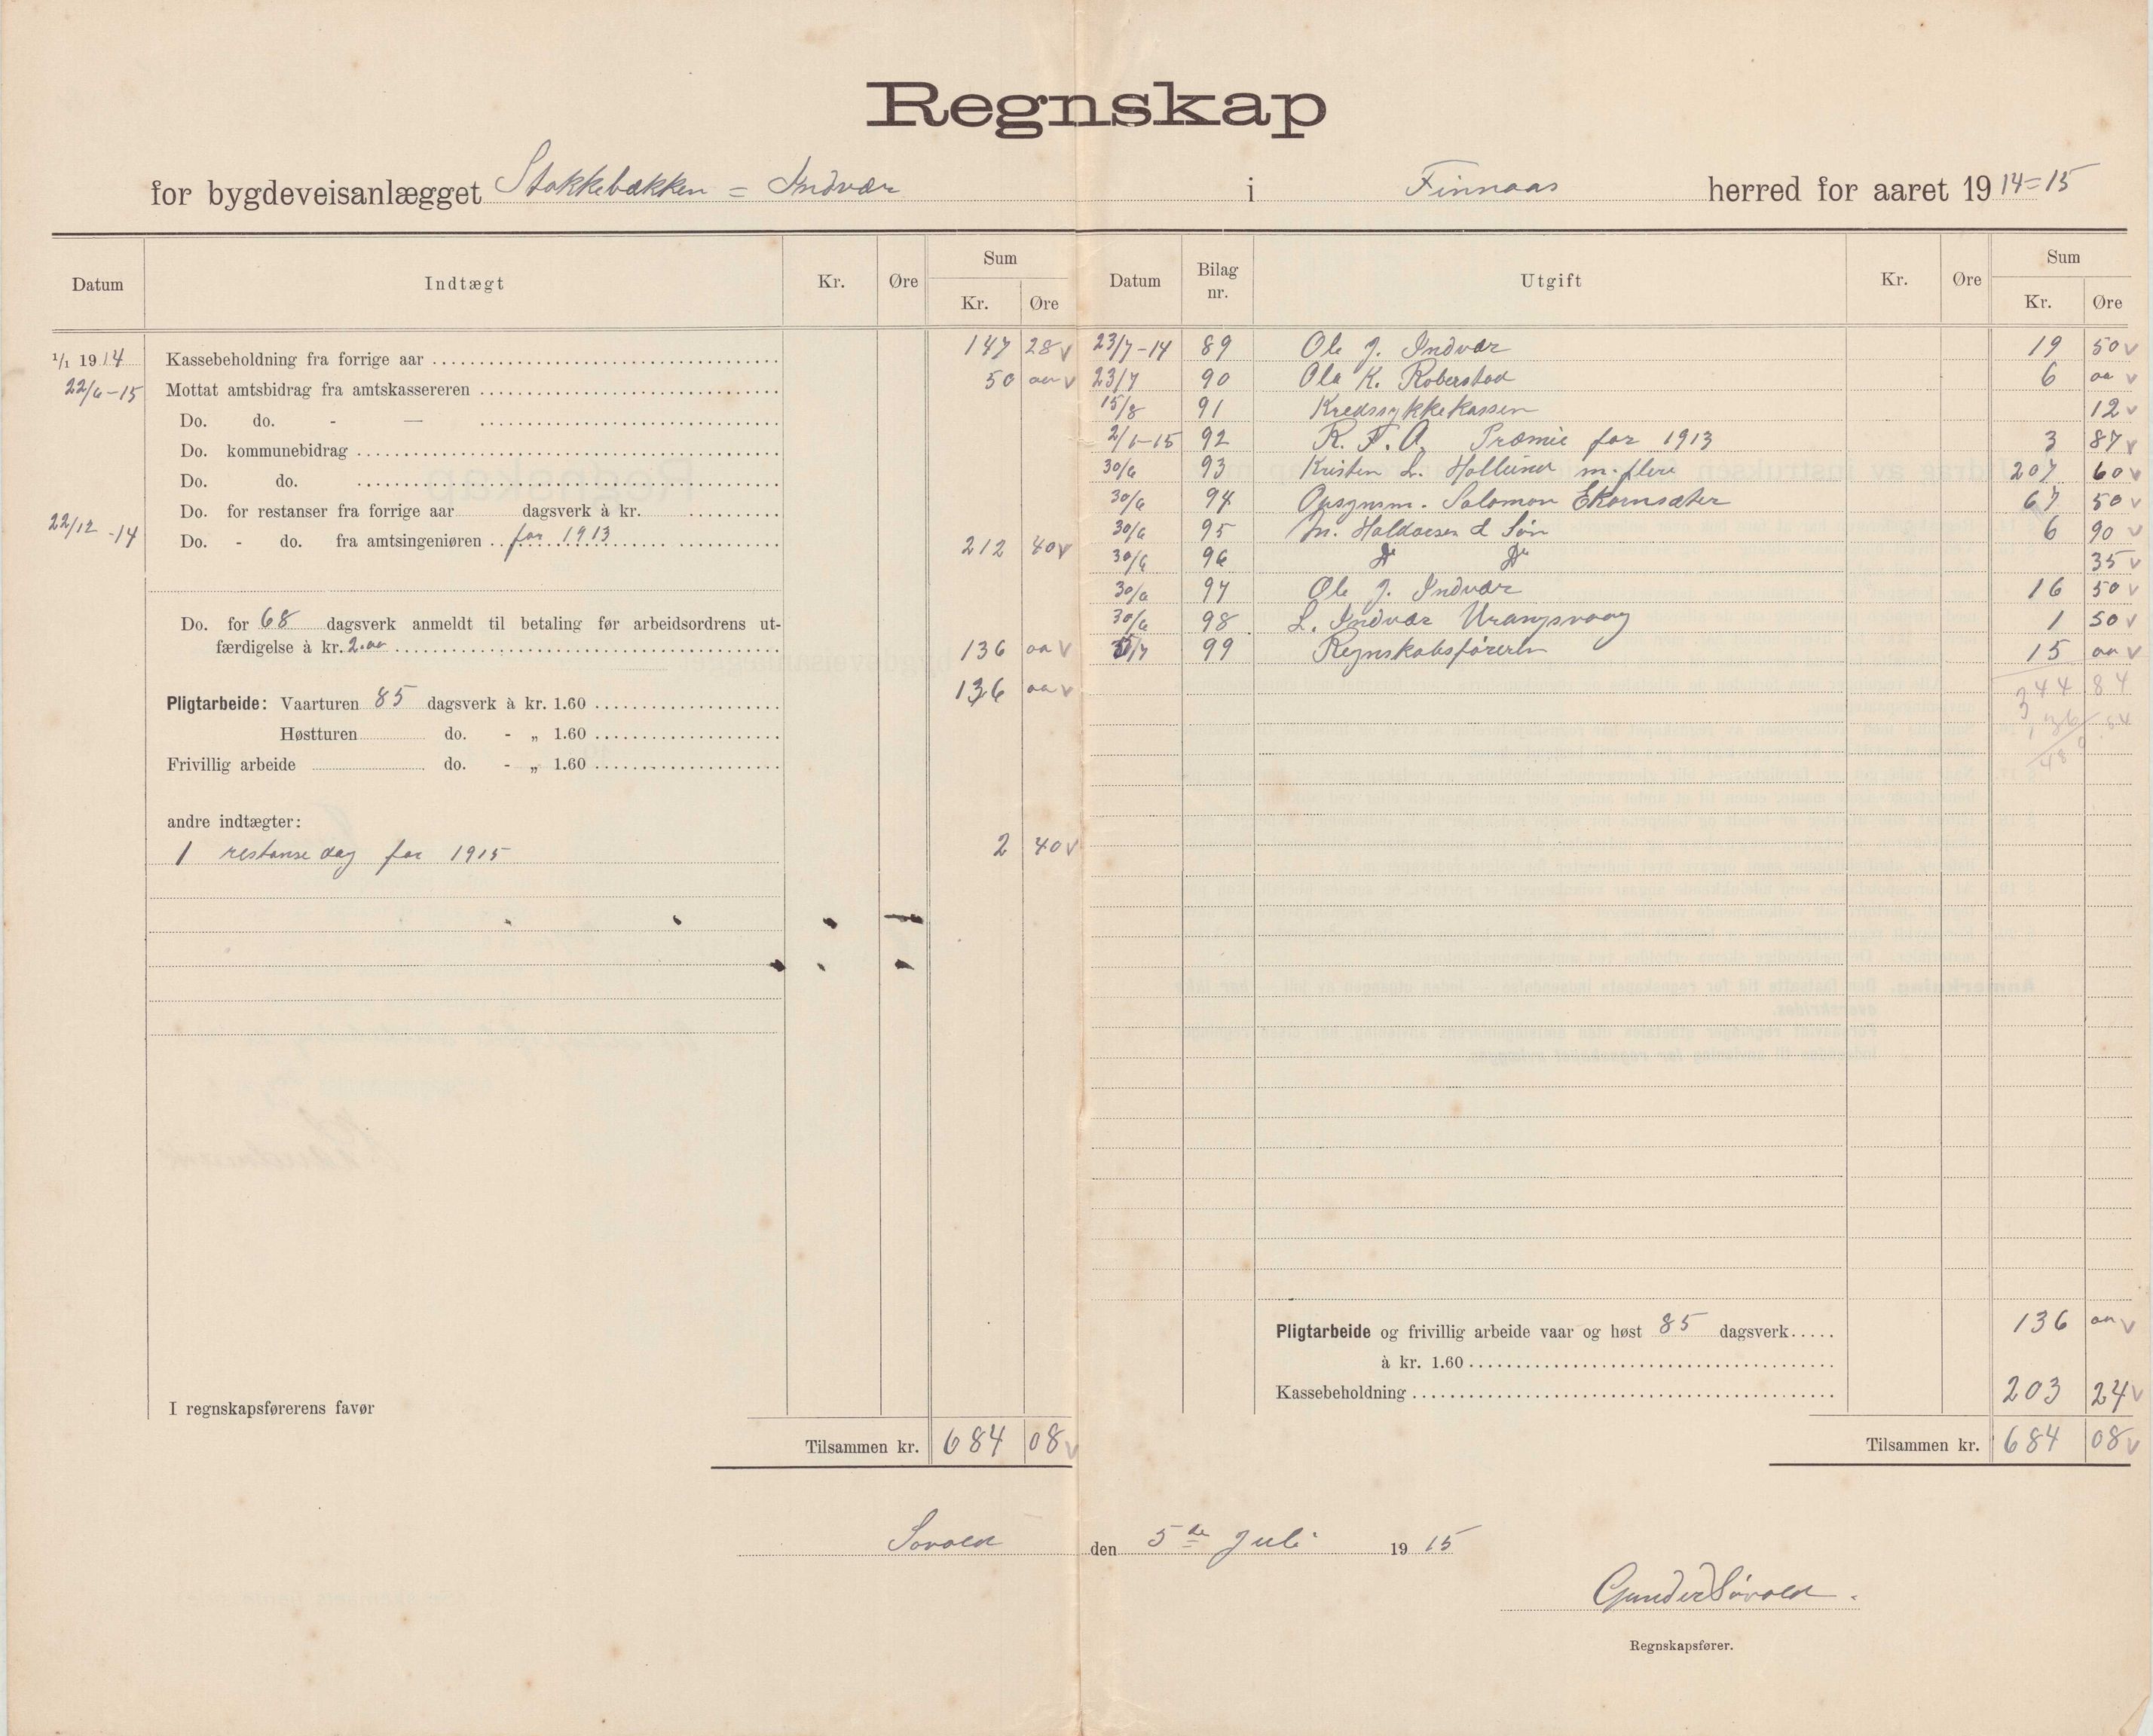 Regnskap
for bygdeveisanlægget Stokkebækken = Indvær i Finnaas herred for aaret 1914=15
Datum Indtægt Kr. Øre Sum Kr. Øre
1/1 1914 Kassebeholdning fra forrige aar 147 28 v
22/6-15 Mottat amtsbidrag fra amtskassereren 50 oo v
Do. do. - —
Do. kommunebidrag
Do. do.
Do. for restanser fra forrige aar dagsverk à kr.
22/12-14 Do. - do. fra amtsingeniøren for 1913 212 40 v
Do. for 68 dagsverk anmeldt til betaling før arbeidsordrens ut-
færdigelse à kr. 2.oo 136 oo v
Pligtarbeide: Vaarturen 85 dagsverk à kr. 1.60 136 oo v
Høstturen do. - „ 1.60
Frivillig arbeide do. - „ 1.60
andre indtægter:
1 restanse dag for 1915 2 40 v
I regnskapsførerens favør
Tilsammen kr. 684 08 v
Datum Bilag nr. Utgift Kr. Øre Sum Kr. Øre
23/7-14 89 Ole J. Indvær 19 50 v
23/7 90 Ola K. Roberstad 6 oo v
15/8 91 Kredssykkekassen 12 v
2/1-15 92 R. F. A. Præmie for 1913 3 87 v
30/6 93 Kristen L. Hollund m. flere 207 60 v
30/6 94 Opsynsm. Salomon Ekornsæter 67 50 v
30/6 95 M. Haldorsen & Søn 6 90 v
30/6 96 Do Do 35 v
30/6 97 Ole J. Indvær 16 50 v
30/6 98 L. Indvær Urangsvaag 1 50 v
5/7 99 Regnskabsføreren 15 oo v
344 84
Pligtarbeide og frivillig arbeide vaar og høst 85 dagsverk 136 oo v
à kr. 1.60
Kassebeholdning 203 24 v
Tilsammen kr. 684 08 v
Sovold den 5te Juli 1915
Gunder Søvold.
Regnskapsfører.